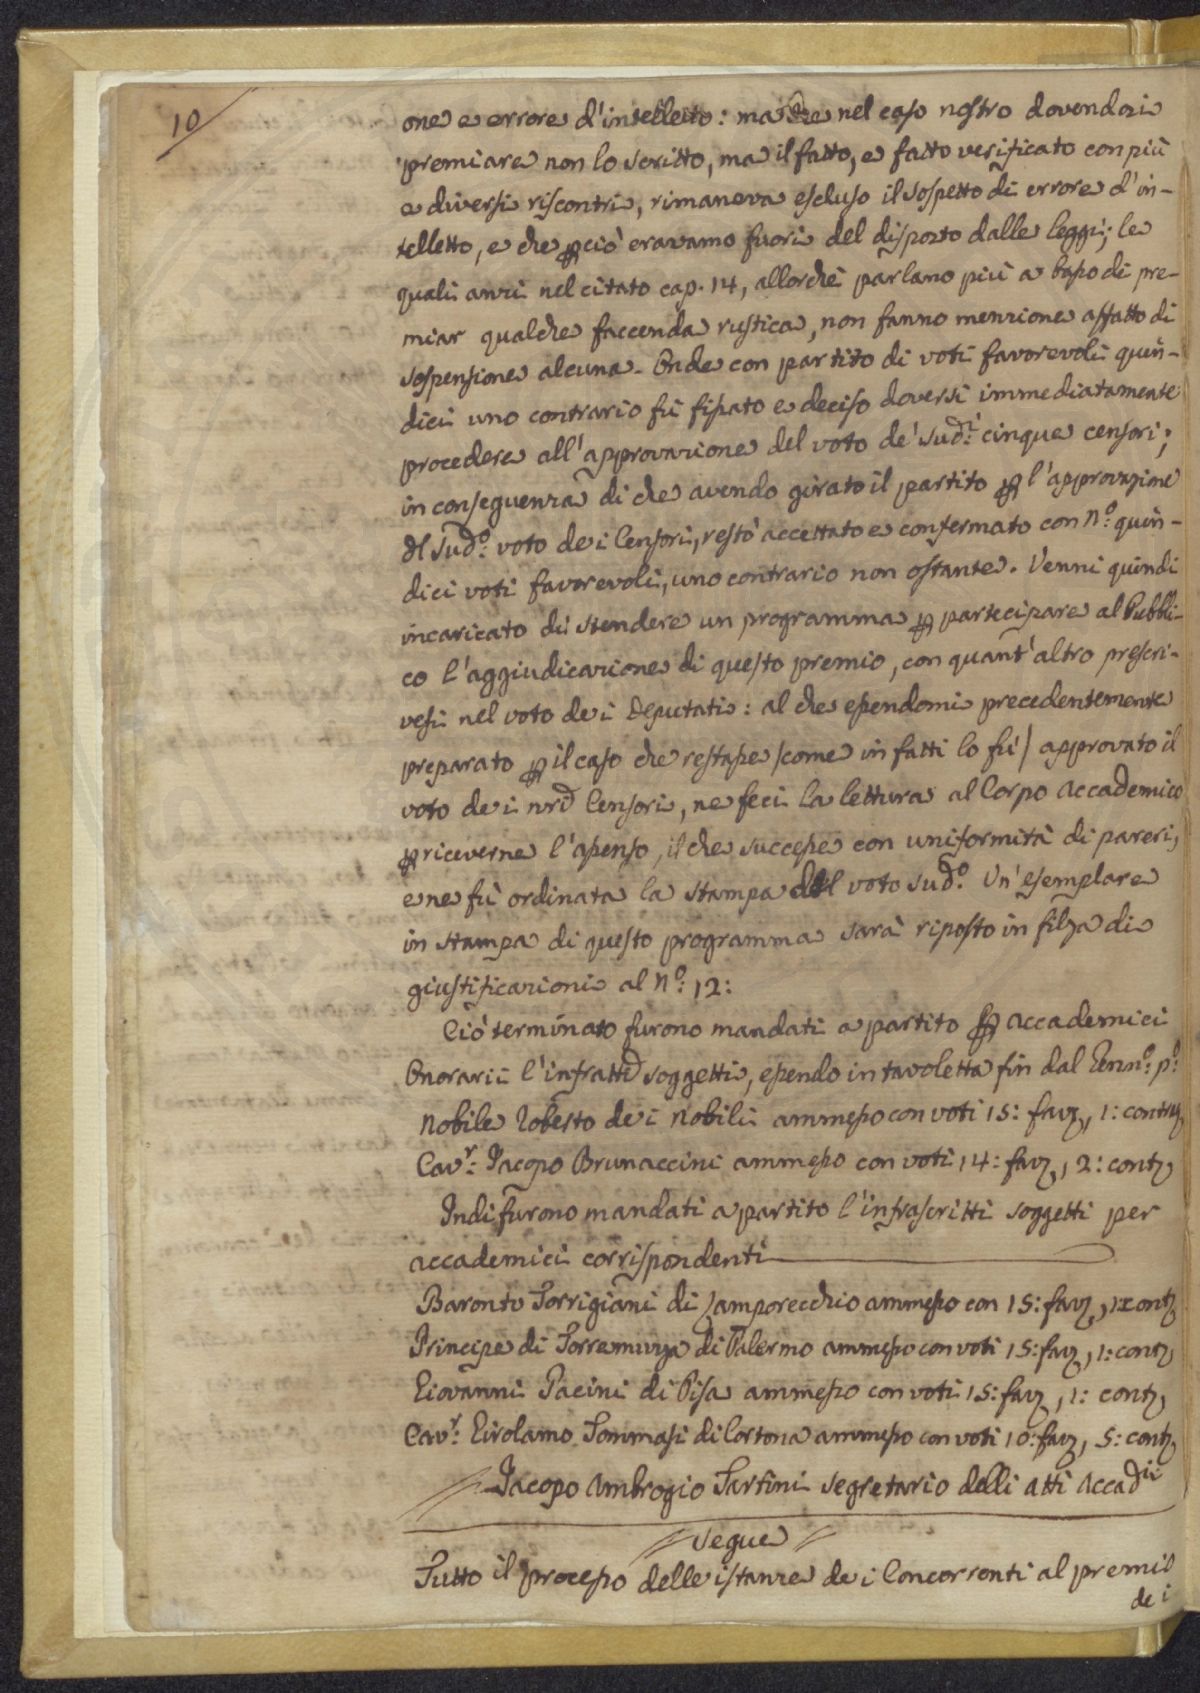 10
one e errore d'intelletto: ma che nel caso nostro dovendosi
premiare non lo scritto, ma il fatto, e fatto verificato con più
e diversi riscontri, rimaneva escluso il sospetto di errore d'in-
telletto, e che pciò eravamo fuori del disposto dalle leggi; le
quali anzi nel citato cap. 14, allorchè parlano più a basso di pre-
miar qualche faccenda rustica, non fanno menzione affatto di
sospensione alcuna. Onde con partito di voti favorevoli quin-
dici uno contrario fù fissato e deciso doversi immediatamente
procedere all'approvazione del voto de' sudi: cinque censori;
in conseguenza di che avendo girato il partito p l'approvazione
del Sudo: voto de i Censori, restò accettato e confermato con No: quin-
dici voti favorevoli, uno contrario non ostante. Venni quindi
incaricato di stendere un programma p partecipare al Pubbli-
co l'aggiudicazione di questo premio, con quant'altro prescri-
vesi nel voto de i Deputati: al che essendomi precedentemente
preparato p il caso che restasse /come in fatti lo fù/ approvato il
voto de i nri Censori, ne feci la lettura al Corpo Accademico
p riceverne l'assenso, il che successe con uniformità di pareri,
e ne fù ordinata la stampa del voto sudo: Un'esemplare
in stampa di questo programma sarà riposto in filza di
giustificazioni al No: 12:
Ciò terminato furono mandati a partito p Accademici
Onorarii l'infratti soggetti, essendo in tavoletta fin dal Genno: po:
Nobile Roberto de i Nobili ammesso con voti 15: fav, 1: contr
Cavr: Jacopo Brunaccini ammesso con voti 14: fav, 2: cont
Indi furono mandati a partito l'infrascritti soggetti per
accademici corrispondenti
Baronto Torrigiani di Lamporecchio ammesso con 15: fav, 1: cont
Principe di Torremuzza di Palermo ammesso con voti 15: fav, 1: cont
Giovanni Pacini di Pisa ammesso con voti 15: fav, 1: cont
Cavr: Girolamo Tommasi di Cortona ammesso con voti 10: fav, 5: cont
Jacopo Ambrogio Tartini segretario delli atti Accadici
Segue
Tutto il processo delle istanze de i Concorrenti al premio
de i